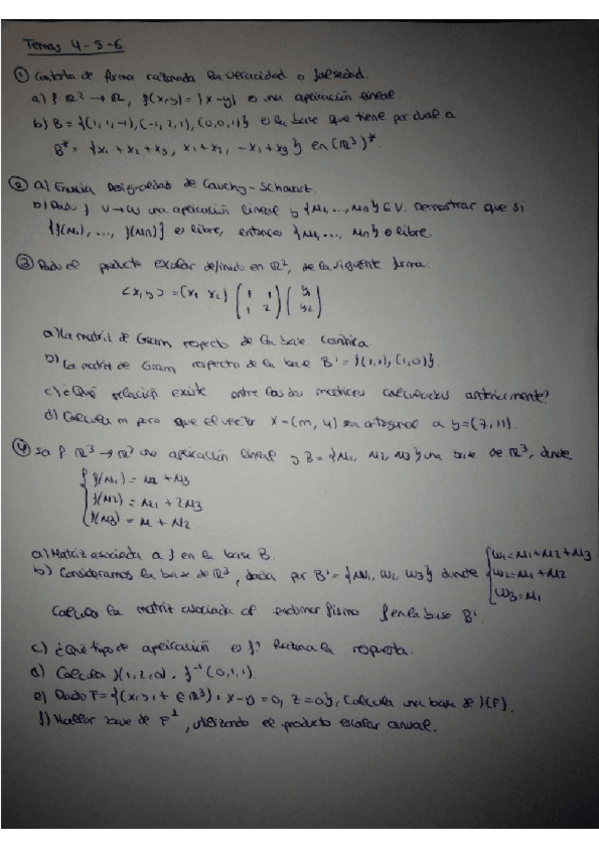 Temas 4-5-6
① Contesta de forma razonada la veracidad o falsedad.
a) f: R² → R, f(x,y) = |x-y| es una aplicación lineal.
b) B = {(1,1,-1), (-1,2,1), (0,0,1)} es la base que tiene por dual a
B* = {x₁ + x₂ + x₃, x₁ + x₂, -x₁ + x₃} en (R³)*
② a) Enuncia Desigualdad de Cauchy-Schwartz.
b) Dado f V→W una aplicación lineal y {u₁, ..., un} ⊂ V. Demostrar que si
{f(u₁), ..., f(un)} es libre, entonces {u₁, ..., un} es libre.
③ Dado el producto escalar definido en R², de la siguiente forma
<x,y> = (x₁ x₂) (1 1 / 1 2) (y₁ / y₂)
a) La matriz de Gram respecto de la base canónica
b) La matriz de Gram respecto de la base B' = {(1,1), (1,0)}.
c) ¿Qué relación existe entre las dos matrices calculadas anteriormente?
d) Calcula m para que el vector x = (m, 4) sea ortogonal a y = (7, 11).
④ Sea f R³ → R³ una aplicación lineal y B = {u₁, u₂, u₃} una base de R³, donde
f(u₁) = u₂ + u₃
f(u₂) = u₁ + 2u₃
f(u₃) = u₁ + u₂
a) Matriz asociada a f en la base B.
b) Consideramos la base de R³, dada por B' = {w₁, w₂, w₃} donde
w₁ = u₁ + u₂ + u₃
w₂ = u₁ + u₂
w₃ = u₁
Calcula la matriz asociada al endomorfismo f en la base B'
c) ¿Qué tipo de aplicación es f? Razona la respuesta.
d) Calcula f(1,2,0), f⁻¹(0,1,1).
e) Dado F = {(x,y,z ∈ R³), x-y = 0, z = 0}, Calcula una base de f(F).
f) Hallar base de F⊥, utilizando el producto escalar usual.